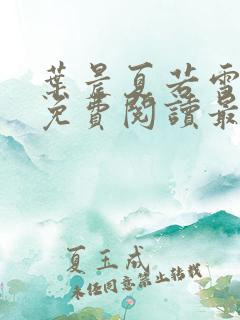 葉晨夏若雪
免費閱讀最
夏玉成
未经同意禁止转载